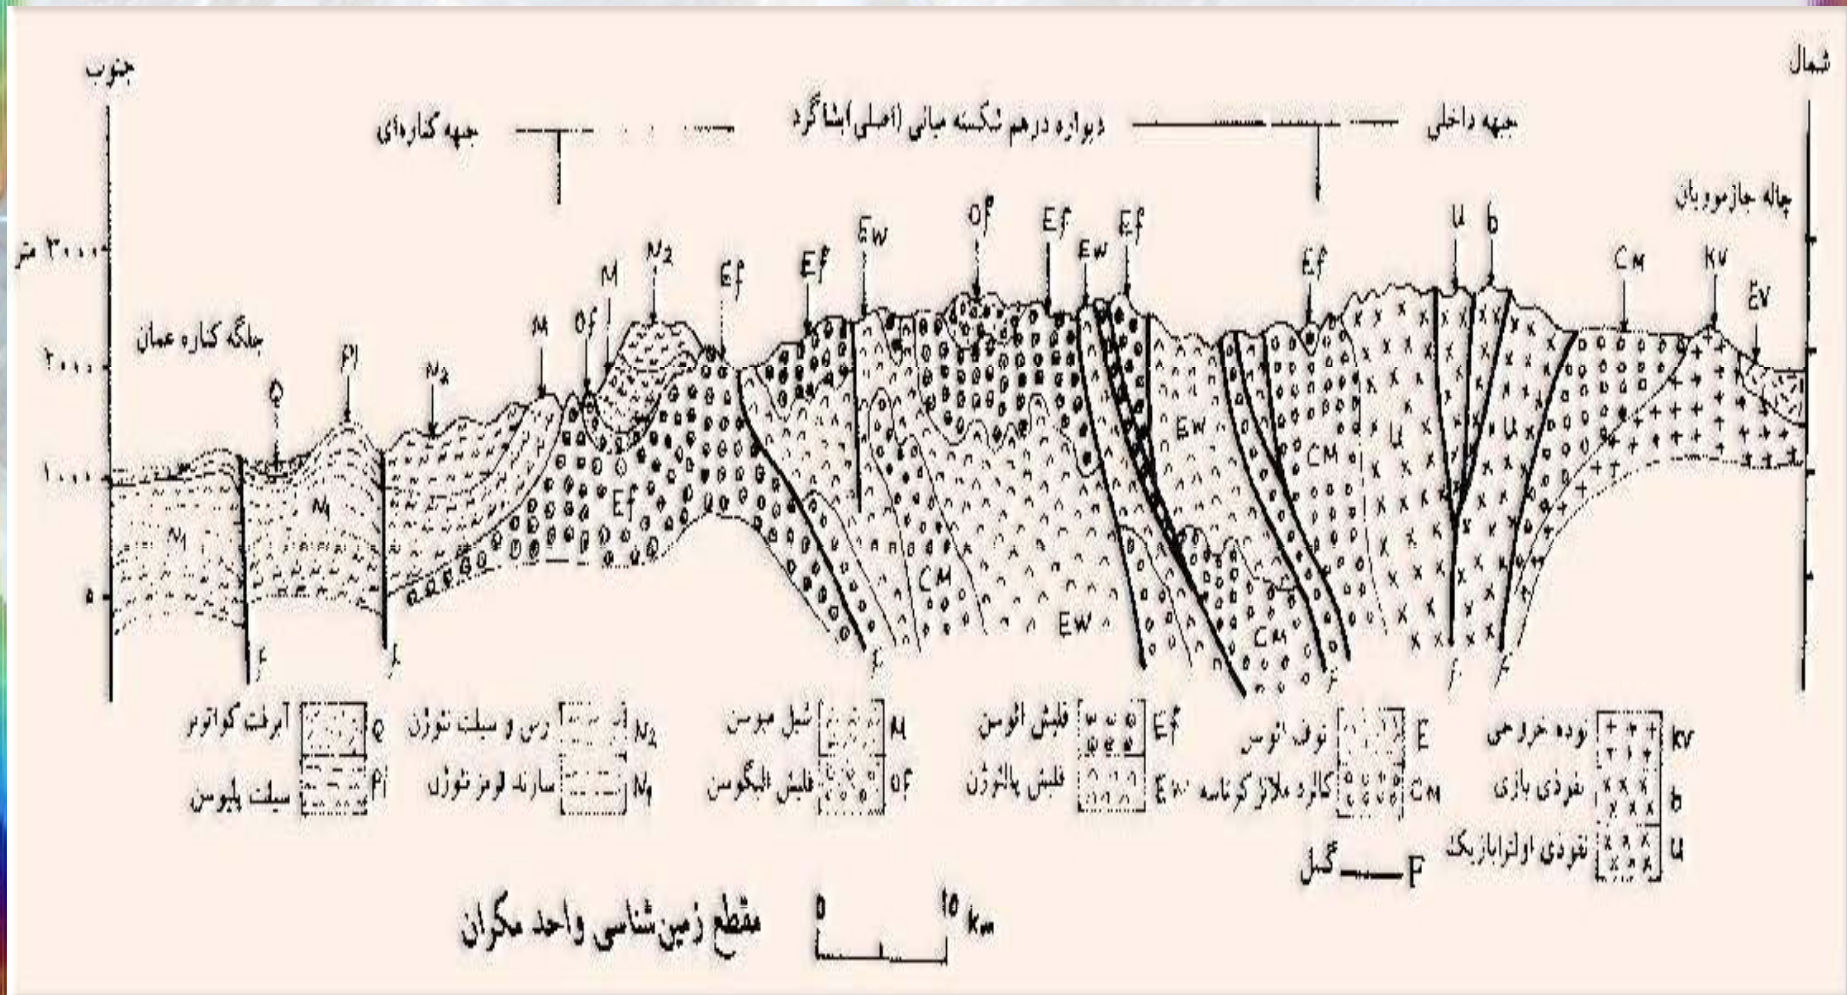 جنوب
شمال
جبهه کناره‌ای
دیواره درهم شکسته میانی (اصلی) بشاگرد
جبهه داخلی
چاله جازموریان
۳۰۰۰ متر
۲۰۰۰
۱۰۰۰
جلگه کناره عمان
Q
Pl
N2
M
Of
M
N2
Ef
Ef
Ew
Of
Ef
Ew
Ef
Ef
U
b
CM
KV
EV
N1
N1
Ef
CM
Ew
Ew
CM
CM
U
U
f
f
f
f
f
f
آبرفت کواترنر Q
سیلت پلیوسن Pl
رس و سیلت نئوژن N2
سازند قرمز نئوژن N1
شیل میوسن M
فلیش الیگوسن Of
فلیش ائوسن Ef
فلیش پالئوژن Ew
توف ائوسن E
کالرد ملانژ کرتاسه CM
گسل F
توده خروجی KV
نفوذی بازی b
نفوذی اولترابازیک U
مقطع زمین‌شناسی واحد مکران
0 10 km